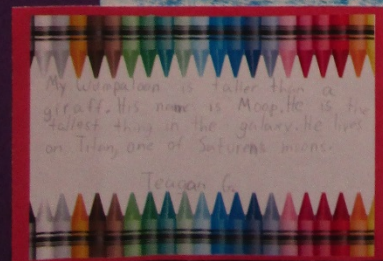 My Wompaloon is taller than a
giraff. His name is Moop. He is the
tallest thing in the galaxy. He lives
on Titan, one of Saturens moons.
Teagan G.